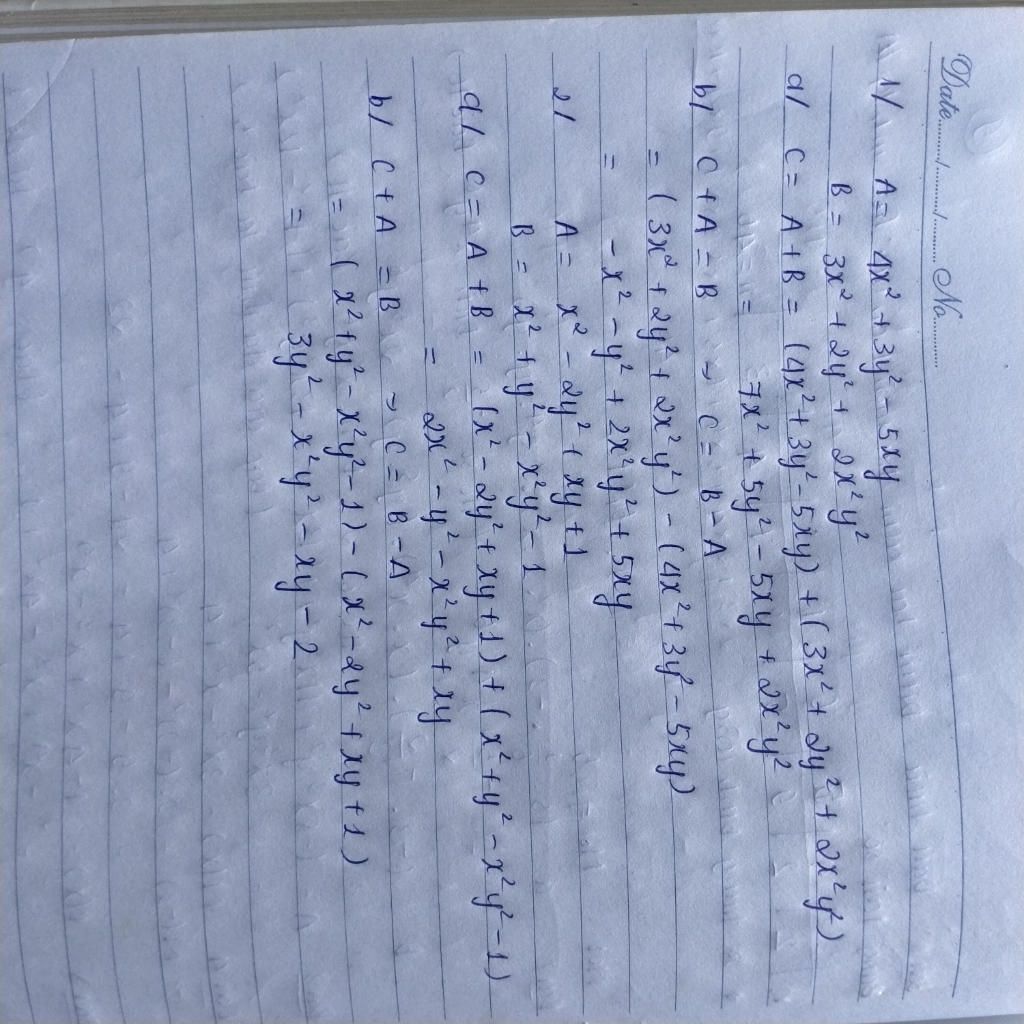 Date......../........./......... No...........
1/ A = 4x² + 3y² - 5xy
B = 3x² + 2y² + 2x²y²
a/ C = A + B = (4x² + 3y² - 5xy) + (3x² + 2y² + 2x²y²)
= 7x² + 5y² - 5xy + 2x²y²
b/ C + A = B → C = B - A
= (3x² + 2y² + 2x²y²) - (4x² + 3y² - 5xy)
= - x² - y² + 2x²y² + 5xy
2/ A = x² - 2y² + xy + 1
B = x² + y² - x²y² - 1
a/ C = A + B = (x² - 2y² + xy + 1) + (x² + y² - x²y² - 1)
= 2x² - y² - x²y² + xy
b/ C + A = B → C = B - A
= (x² + y² - x²y² - 1) - (x² - 2y² + xy + 1)
= 3y² - x²y² - xy - 2